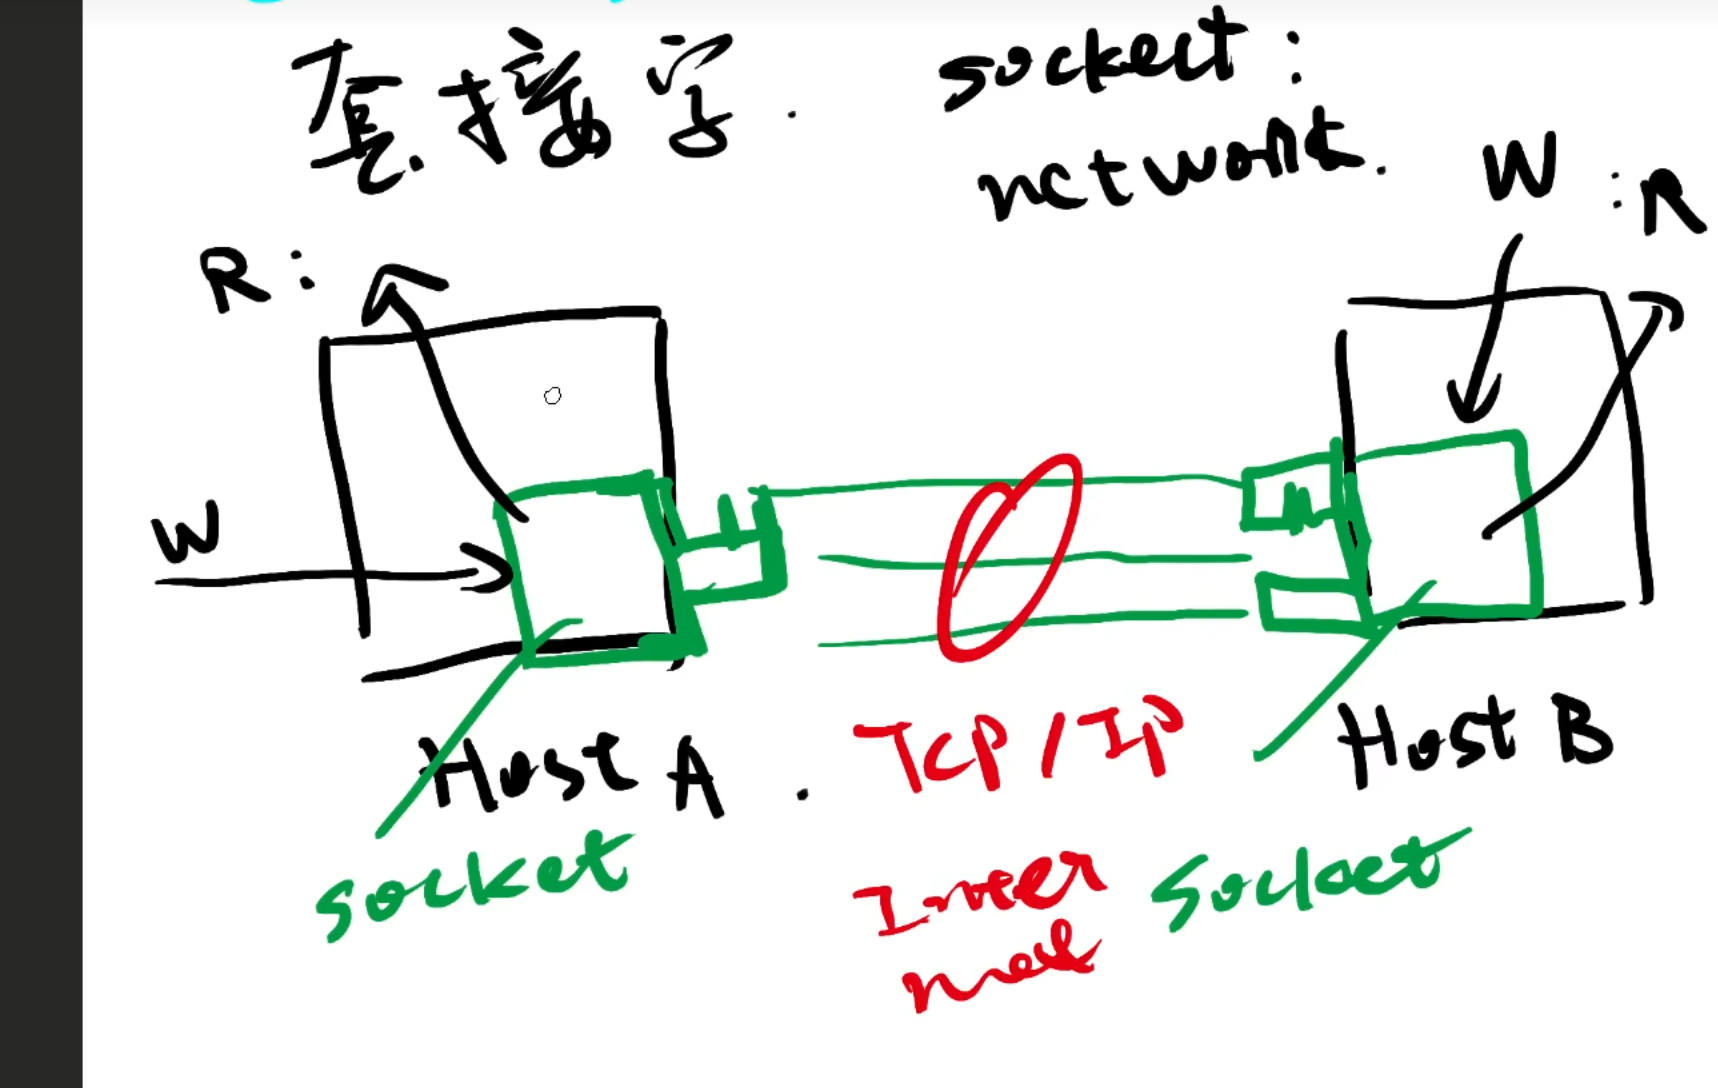 套接字. socket:
network.
W :R
R:
W
Host A. TCP/IP Host B
socket Internet Socket